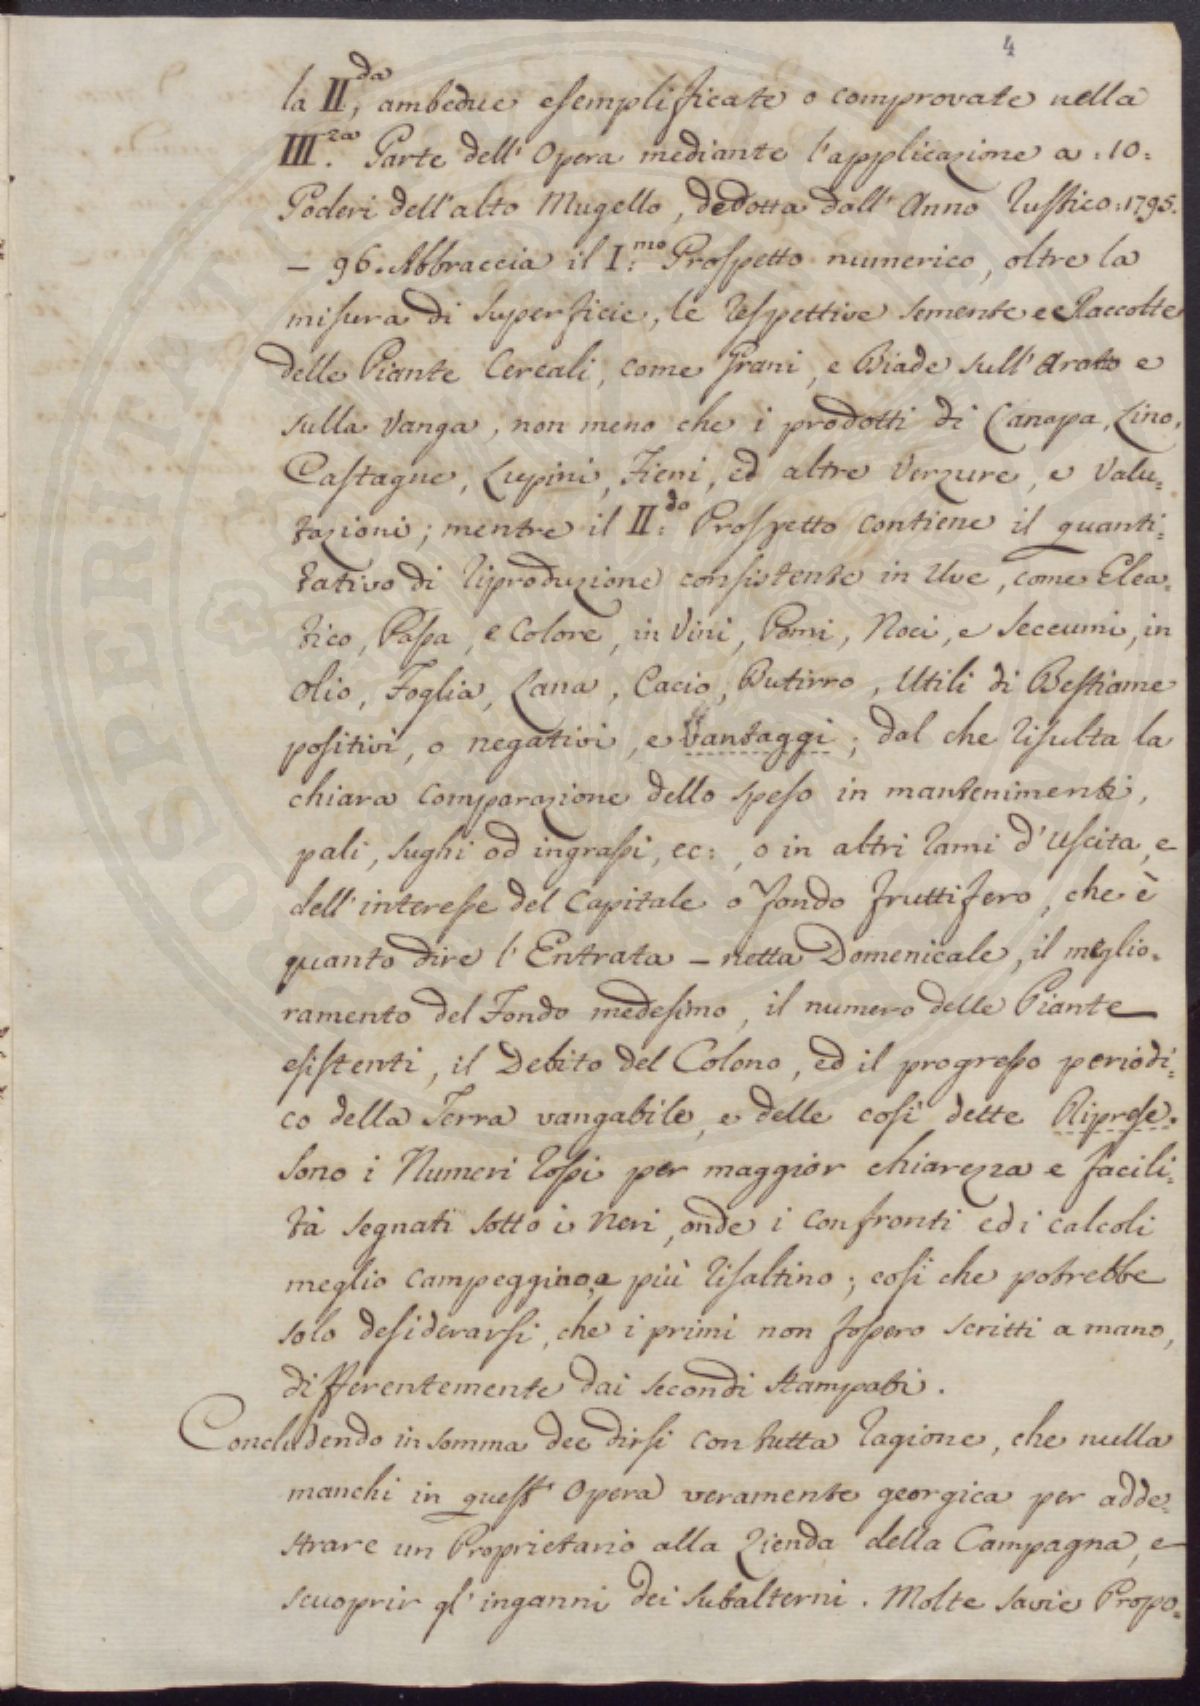 4
la II,da ambedue esemplificate o comprovate nella
III.za Parte dell' Opera mediante l'applicazione a :10:
Poderi dell'alto Mugello, dedotta dall' Anno rustico :1795.
– 96. Abbraccia il I:mo Prospetto numerico, oltre la
misura di superficie, le respettive semente e Raccolte
delle Piante Cereali, come Grani, e Biade sull' Arato e
sulla Vanga, non meno che i prodotti di Canapa, Lino,
Castagne, Lupini, Fieni, ed altre Verzure, e Valu:
tazioni; mentre il II:do Prospetto contiene il quanti:
tativo di riproduzione consistente in Uve, come Elea:
tico, Passa, e Colore, in Vini, Pomi, Noci, e Seccumi, in
Olio, Foglia, Lana, Cacio, Butirro, Utili di Bestiame
positivi, o negativi, e Vantaggi; dal che risulta la
chiara comparazione dello speso in mantenimenti,
pali, sughi od ingrassi, ec:, o in altri rami d'Uscita, e
dell' interesse del Capitale o fondo fruttifero, che è
quanto dire l' Entrata – netta Domenicale, il miglio:
ramento del Fondo medesimo, il numero delle Piante
esistenti, il Debito del Colono, ed il progresso periodi:
co della Terra vangabile, e delle così dette Riprese.
Sono i Numeri rossi per maggior chiarezza e facili:
tà segnati sotto i Neri, onde i confronti ed i calcoli
meglio campeggino, e più risaltino; così che potrebbe
solo desiderarsi, che i primi non fossero scritti a mano,
differentemente dai secondi stampati.
Concludendo in somma dee dirsi con tutta ragione, che nulla
manchi in quest' Opera veramente georgica per adde:
strare un Proprietario alla Zienda della Campagna, e
scuoprir gl' inganni dei subalterni. Molte savie Propo:
SPERINAT